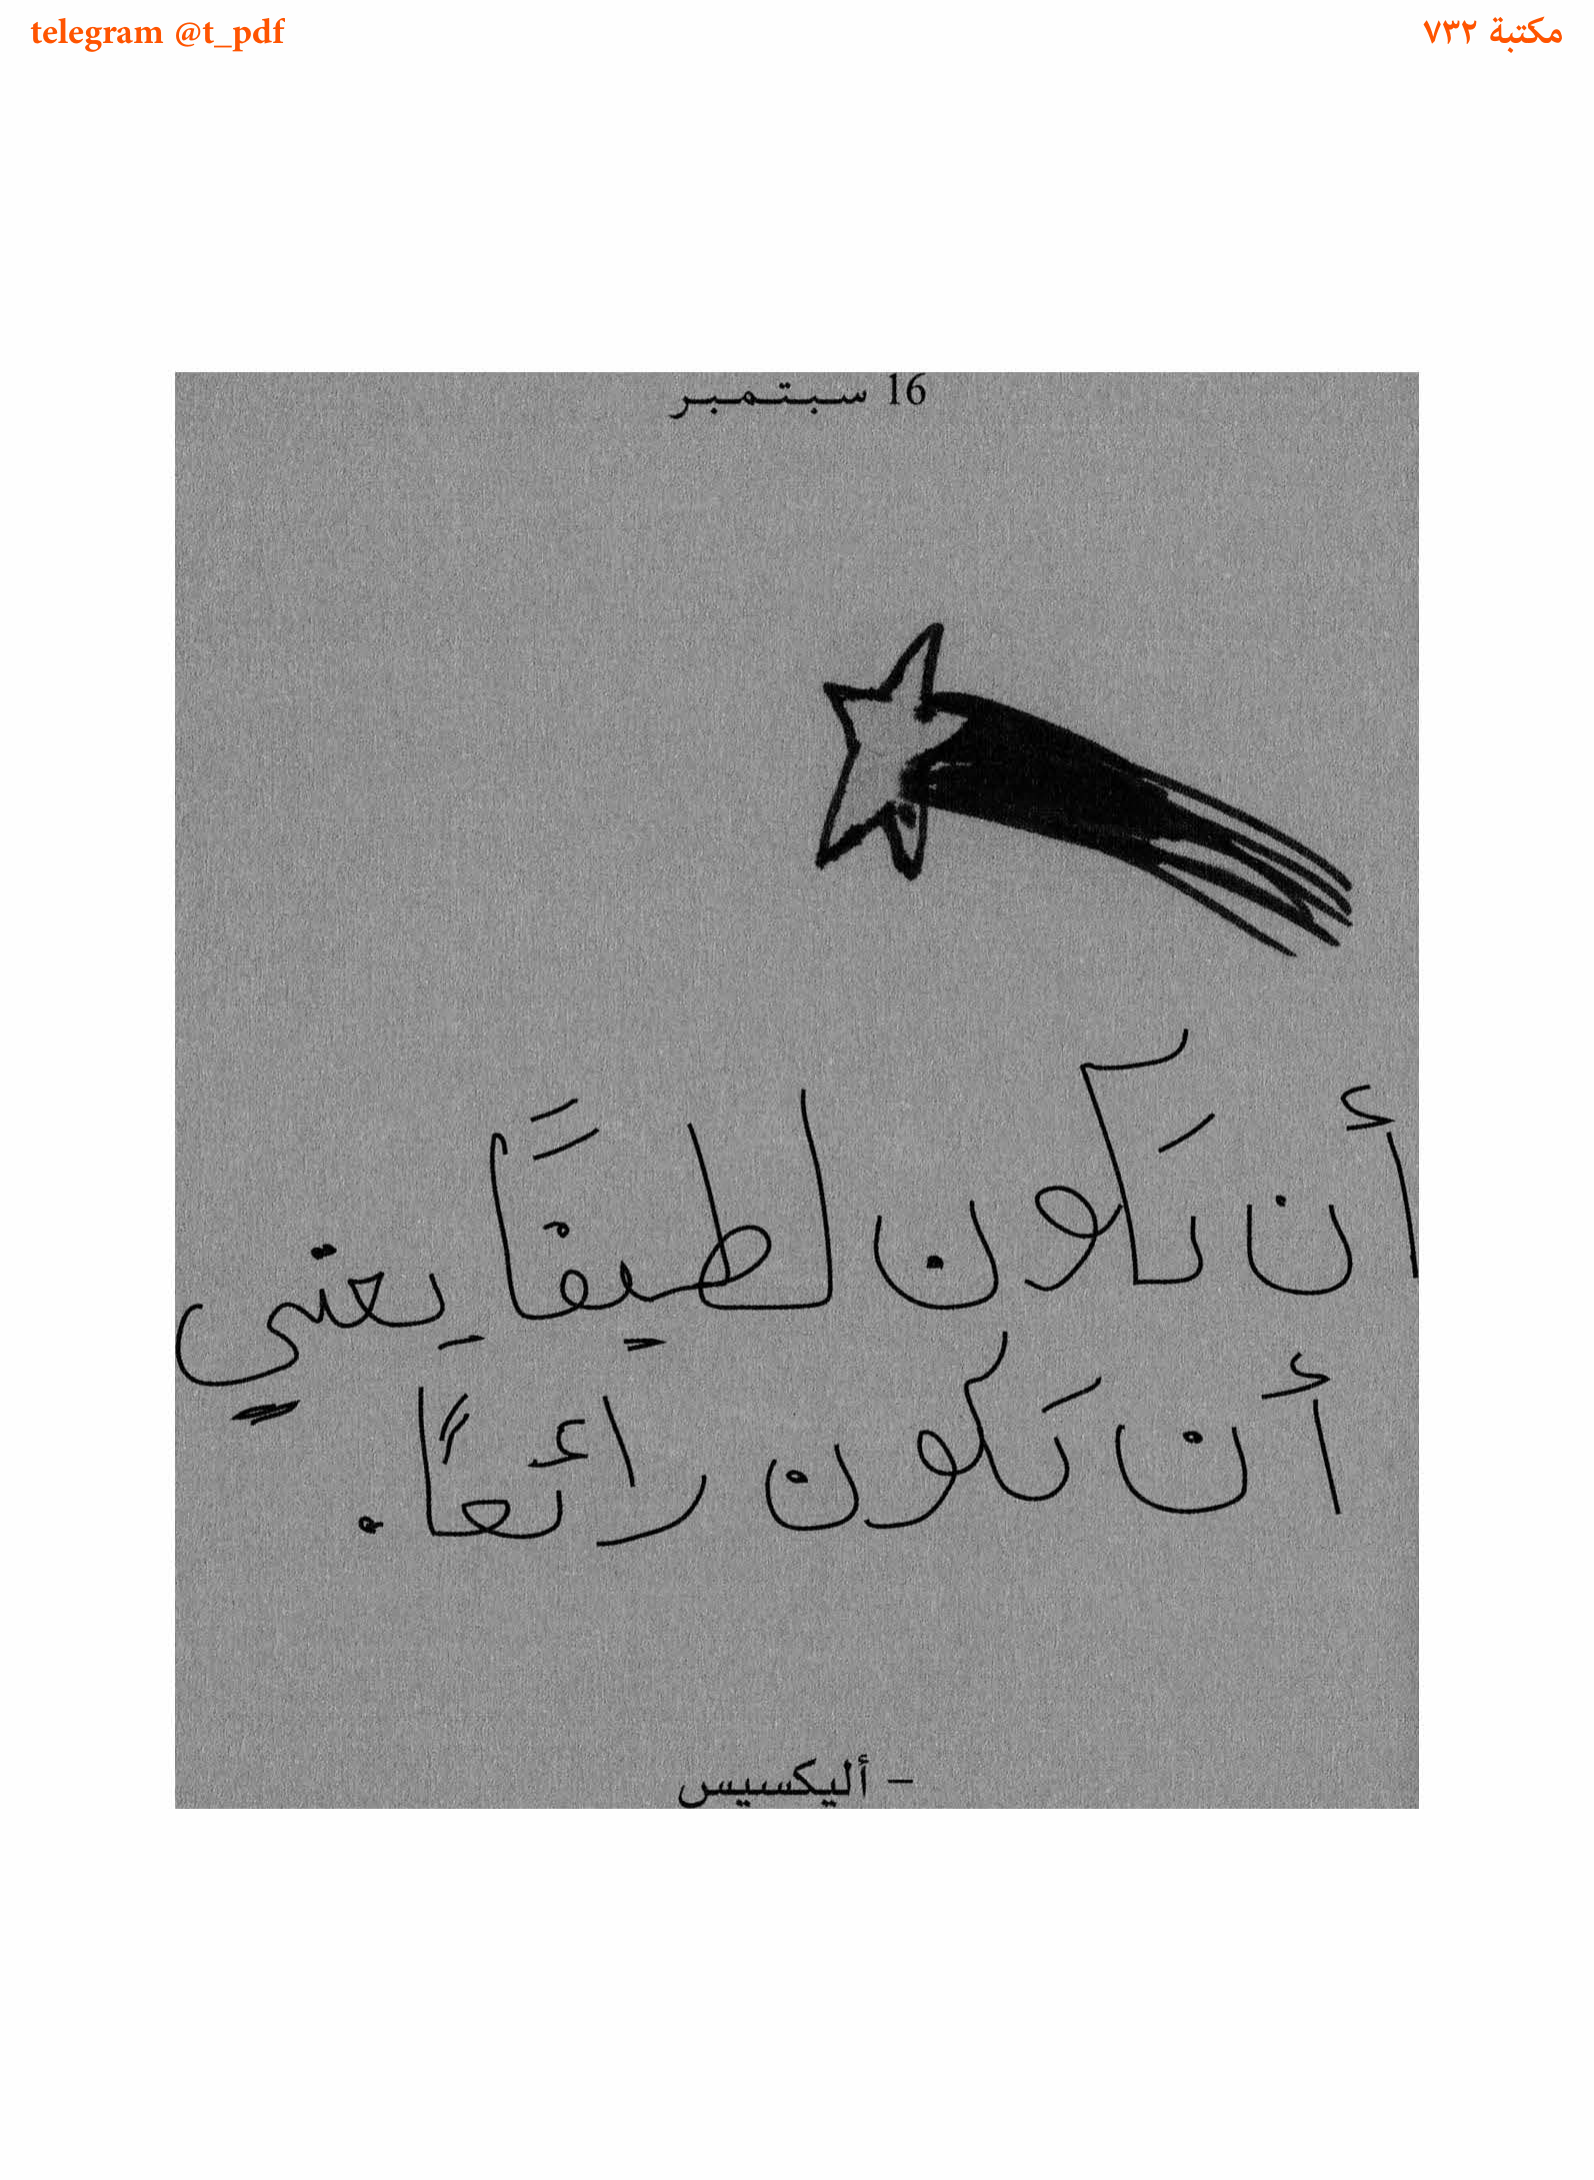 telegram @t_pdf
مكتبة ٧٣٢
16 سبتمبر
أن تكون لطيفًا يعني
أن تكون رائعًا.
– أليكسيس